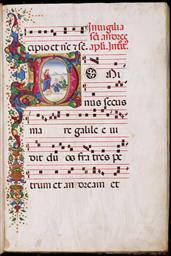 In uigilia
sci andree
capio et nc̄ ⁊ sc̄
apli. Introit.
D Omi
nus secus
ma re galilee ui
dit du os fratres pe
trum et andream et